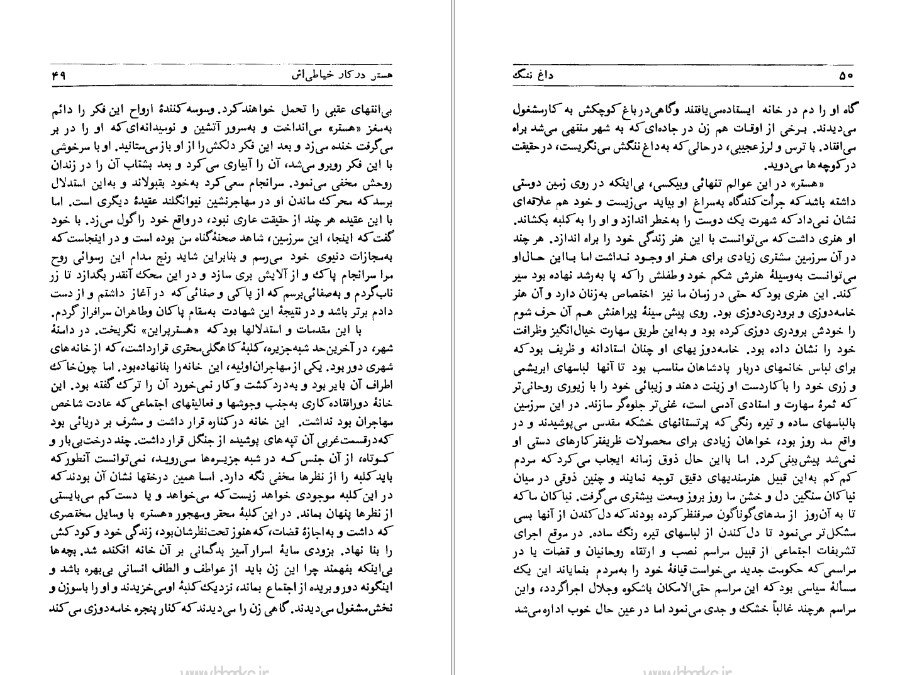 هستر در کار خیاطی‌اش ۴۹
بی‌انتهای عقبی را تحمل خواهند کرد. وسوسه کنندهٔ ارواح این فکر را دائم
به‌مغز «هستر» می‌انداخت و به‌سرور آتشین و نومیدانه‌ای که او را در بر
می‌گرفت خنده می‌زد و بعد این فکر دلکش را از او باز می‌ستانید. او با سرخوشی
با این فکر روبرو می‌شد، آن را آبیاری می‌کرد و بعد بشتاب آن را در زندان
روحش مخفی می‌نمود. سرانجام سعی کرد به‌خود بقبولاند و به‌این استدلال
برسد که محرک ماندن او در مهاجرنشین نیوانگلند عقیدهٔ دیگری است. اما
با این عقیده هر چند از حقیقت عاری نبود، در واقع خود را گول می‌زد. با خود
گفت که اینجا، این سرزمین، شاهد صحنهٔ گناه من بوده است و در اینجاست که
به‌مجازات دنیوی خود می‌رسم و بنابراین شاید رنج مدام این رسوائی روح
مرا سرانجام پاک و از آلایش بری سازد و در این محک آنقدر بگدازد تا زر
ناب گردم و به‌صفائی برسم که از پاکی و صفائی که در آغاز داشتم و از دست
دادم برتر باشد و در نتیجهٔ این شهادت به‌مقام پاکان و طاهران سرافراز گردم.
با این مقدمات و استدلالها بود که «هسترپراین» نگریخت. در دامنهٔ
شهر، در آخرین حد شبه‌جزیره، کلبهٔ کاهگلی محقری قرار داشت، که از خانه‌های
شهری دور بود. یکی از مهاجران اولیه، این خانه را بنا نهاده بود. اما چون خاک
اطراف آن بایر بود و به‌درد کشت و کار نمی‌خورد آن را ترک گفته بود. این
خانهٔ دورافتاده کاری به‌جنب و جوشها و فعالیتهای اجتماعی که عادت شاخص
مهاجران بود نداشت. این خانه در کناره قرار داشت و مشرف بر دریائی بود
که در قسمت غربی آن تپه‌های پوشیده از جنگل قرار داشت. چند درخت بی‌بار و
کوتاه، از آن جنس که در شبه جزیره‌ها می‌روید، نمی‌توانست آنطور که
باید کلبه را از نظرها مخفی نگه دارد. اما همین درختها نشان آن بودند که
در این کلبه موجودی خواهد زیست که می‌خواهد و یا دست کم می‌بایستی
از نظرها پنهان بماند. در این کلبهٔ محقر و مهجور «هستر» با وسایل مختصری
که داشت و به‌اجازهٔ قضات، که هنوز تحت‌نظرشان بود، زندگی خود و کودکش
را بنا نهاد. بزودی سایهٔ اسرار آمیز بدگمانی بر آن خانه افکنده شد. بچه‌ها
بی‌اینکه بفهمند چرا این زن باید از عواطف و الطاف انسانی بی‌بهره باشد و
اینگونه دور و بریده از اجتماع بماند، نزدیک کلبهٔ او می‌خزیدند و او را با سوزن و
نخش مشغول می‌دیدند. گاهی زن را می‌دیدند که کنار پنجره خامه‌دوزی می‌کند
۵۰ داغ ننگ
گاه او را دم در خانه ایستاده می‌یافتند و گاهی در باغ کوچکش به کار مشغول
می‌دیدند. برخی از اوقات هم زن در جاده‌ای که به شهر منتهی می‌شد براه
می‌افتاد. با ترس و لرز عجیبی، در حالی که به‌داغ ننگش می‌نگریست، در حقیقت
در کوچه‌ها می‌دوید.
«هستر» در این عوالم تنهائی و بیکسی، بی‌اینکه در روی زمین دوستی
داشته باشد که جرأت کند گاه به‌سراغ او بیاید می‌زیست و خود هم علاقه‌ای
نشان نمی‌داد که شهرت یک دوست را به‌خطر اندازد و او را به کلبه بکشاند.
او هنری داشت که می‌توانست با این هنر زندگی خود را براه اندازد. هر چند
در آن سرزمین مشتری زیادی برای هنر او وجود نداشت اما با این حال او
می‌توانست به‌وسیلهٔ هنرش شکم خود و طفلش را که پا به‌رشد نهاده بود سیر
کند. این هنری بود که حتی در زمان ما نیز اختصاص به‌زنان دارد و آن هنر
خامه‌دوزی و برودری‌دوزی بود. روی پیش سینهٔ پیراهنش هم آن حرف شوم
را خودش برودری دوزی کرده بود و به‌این طریق مهارت خیال‌انگیز و ظرافت
خود را نشان داده بود. خامه‌دوزیهای او چنان استادانه و ظریف بود که
برای لباس خانمهای دربار پادشاهان مناسب بود تا آنها لباسهای ابریشمی
و زری خود را با کار دست او زینت دهند و زیبائی خود را با زیوری روحانی‌تر
که ثمرهٔ مهارت و استادی آدمی است، غنی‌تر جلوه‌گر سازند. در این سرزمین
با لباسهای ساده و تیره رنگی که پرتستانهای خشکه مقدس می‌پوشیدند و در
واقع مد روز بود، خواهان زیادی برای محصولات ظریفتر کارهای دستی او
نمی‌شد پیش‌بینی کرد. اما با این حال ذوق زمانه ایجاب می‌کرد که مردم
کم کم به‌این قبیل هنرمندیهای دقیق توجه نمایند و چنین ذوقی در میان
نیاکان سنگین دل و خشن ما روز بروز وسعت بیشتری می‌گرفت. نیاکان ما که
تا به آن‌روز از مدهای گوناگون صرفنظر کرده بودند که دل کندن از آنها بسی
مشکل‌تر می‌نمود تا دل کندن از لباسهای تیره رنگ ساده. در موقع اجرای
تشریفات اجتماعی از قبیل مراسم نصب و ارتقاء روحانیان و قضات یا در
مراسمی که حکومت جدید می‌خواست قیافهٔ خود را به‌مردم بنمایاند این یک
مسألهٔ سیاسی بود که این مراسم حتی‌الامکان باشکوه و جلال اجرا گردد، و این
مراسم هر چند غالباً خشک و جدی می‌نمود اما در عین حال خوب اداره می‌شد